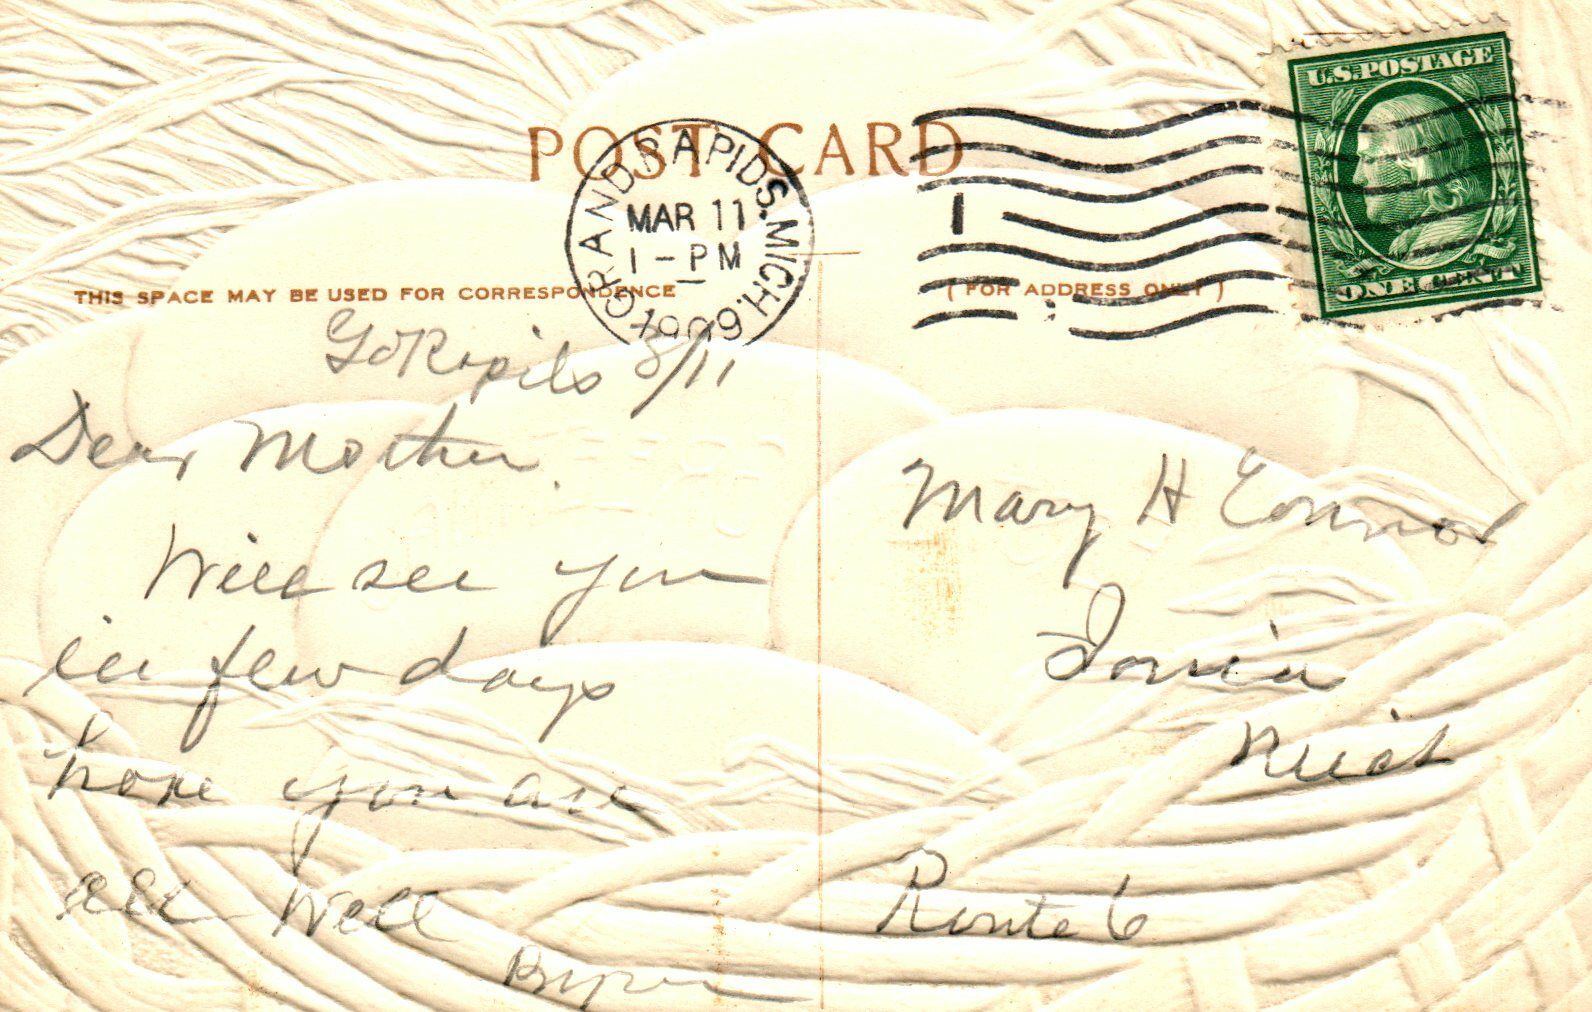 U.S. POSTAGE
ONE CENT
POST CARD
GRAND RAPIDS, MICH.
MAR 11
1 - PM
1909
1
THIS SPACE MAY BE USED FOR CORRESPONDENCE
(FOR ADDRESS ONLY)
Gd Rapids 3/11
Dear Mother
Will see you
in few days
hope you are
all well
Mary H Connor
Ionia
Mich
Route 6